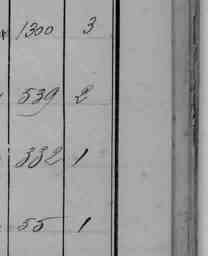 1300 3
539 2
332 1
55 1